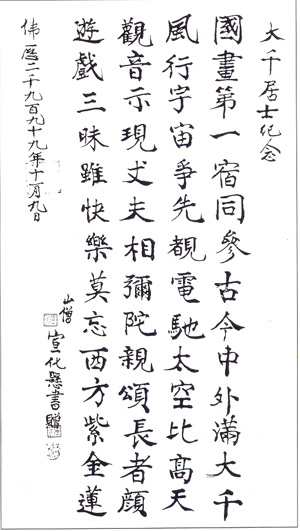 大千居士紀念
國畫第一宿同參古今中外滿大千
風行宇宙爭先覩電馳太空比高天
觀音示現丈夫相彌陀親頌長者顏
遊戲三昧雖快樂莫忘西方紫金蓮
山僧宣化懸書贈
佛曆二千九百九十九年十一月九日